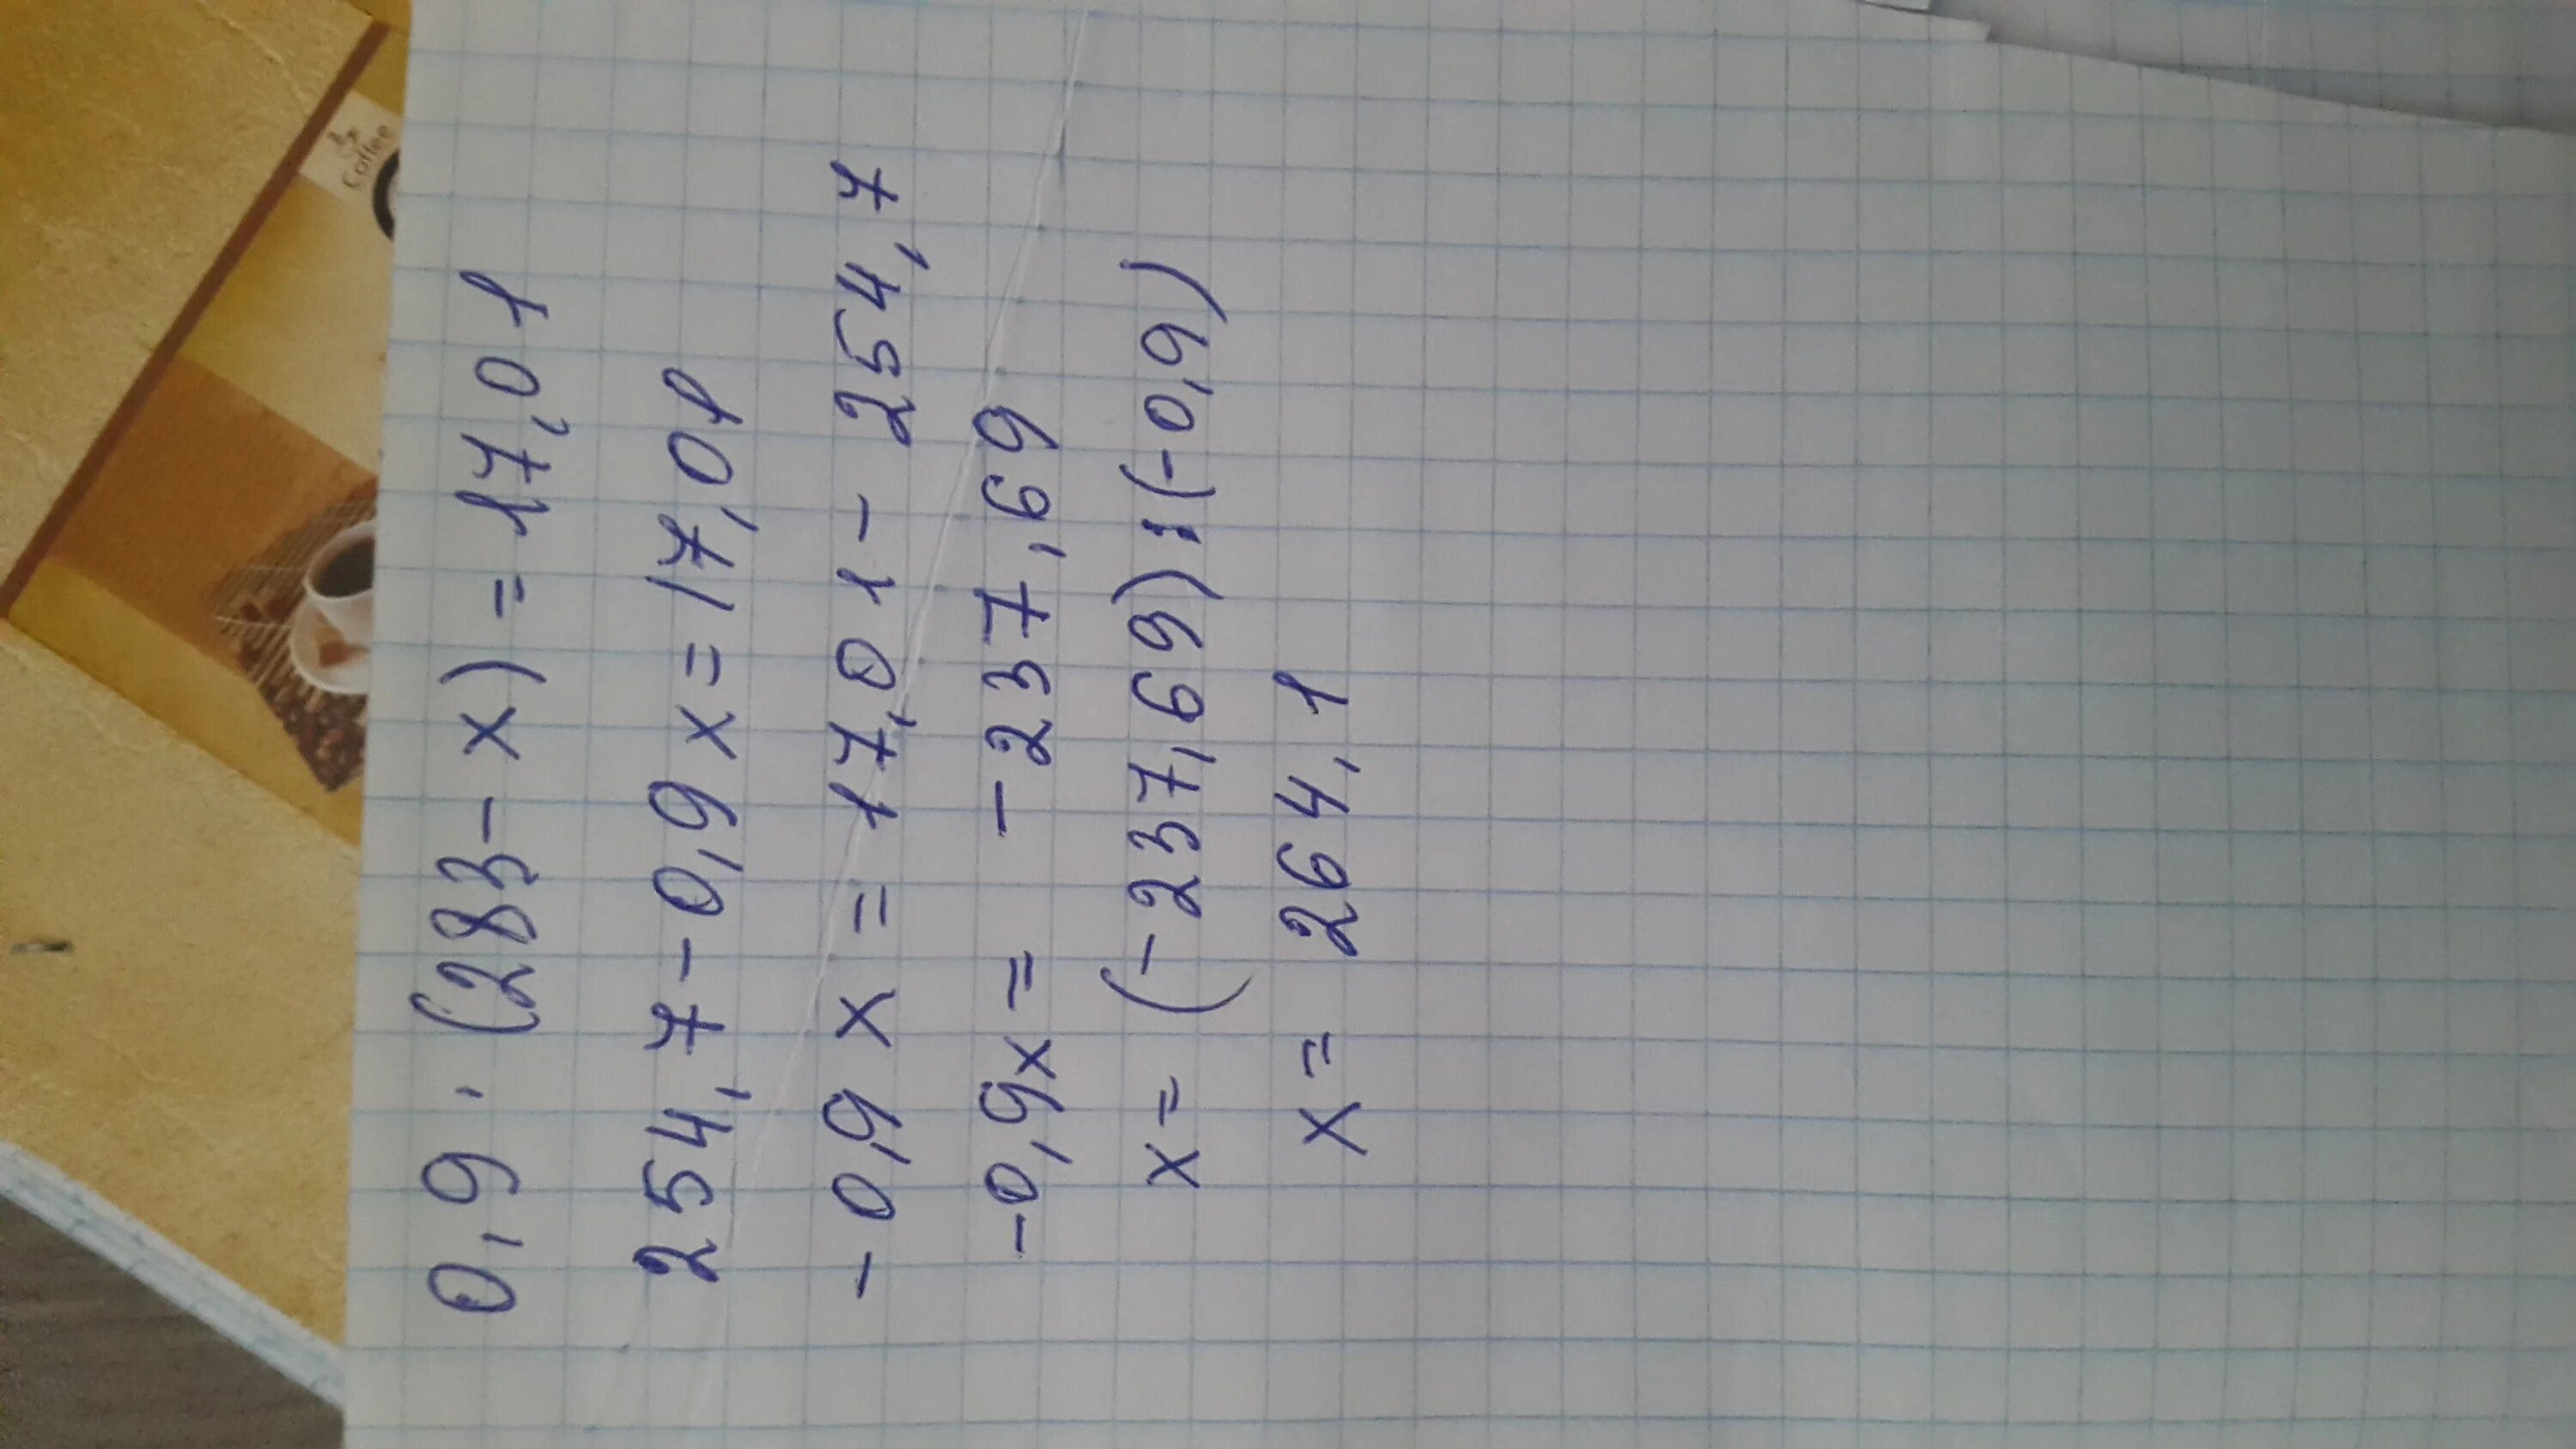 0,9 · (283 - x) = 17,01
254,7 - 0,9 x = 17,01
- 0,9 x = 17,01 - 254,7
-0,9x = - 237,69
x = (- 237,69) : (- 0,9)
x = 264,1
Coffee